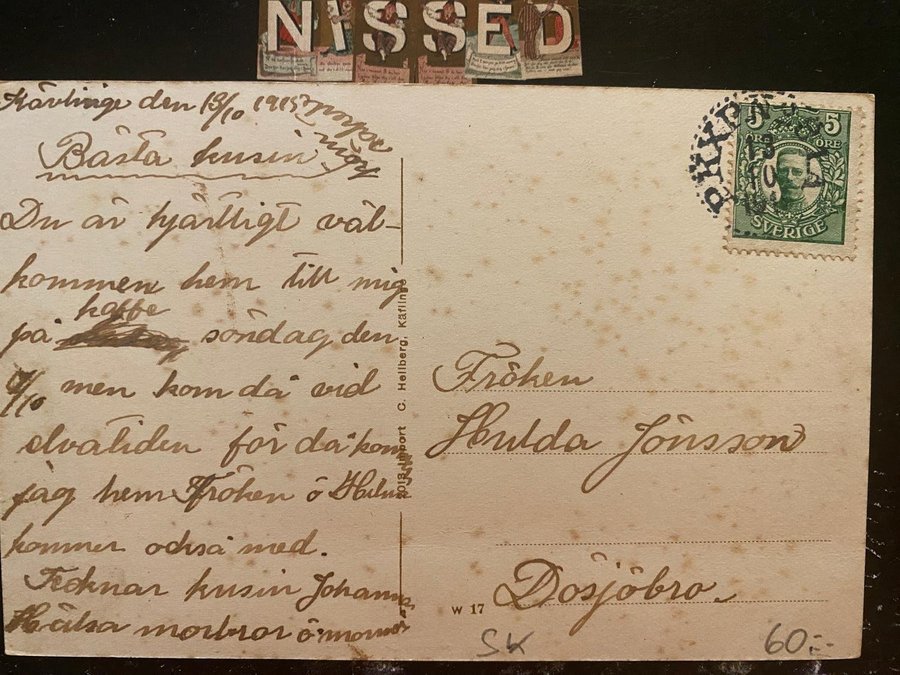 NISSED
Kävlinge den 13/10 1915
Bästa kusin
Du är hjärtligt väl-
kommen hem till mig
på kaffe söndag den
/10 men kom då vid
elvatiden för då kom
jag hem Fröken ö
kommer också med.
Tecknar kusin Johanna
Hälsa morbror ö mormor
Import C. Hellberg, Käflinge
5 5
ÖRE ÖRE
SVERIGE
PKXP N
13
10
Fröken
Hulda Jönsson
Dösjöbro.
W 17
SK
60:-